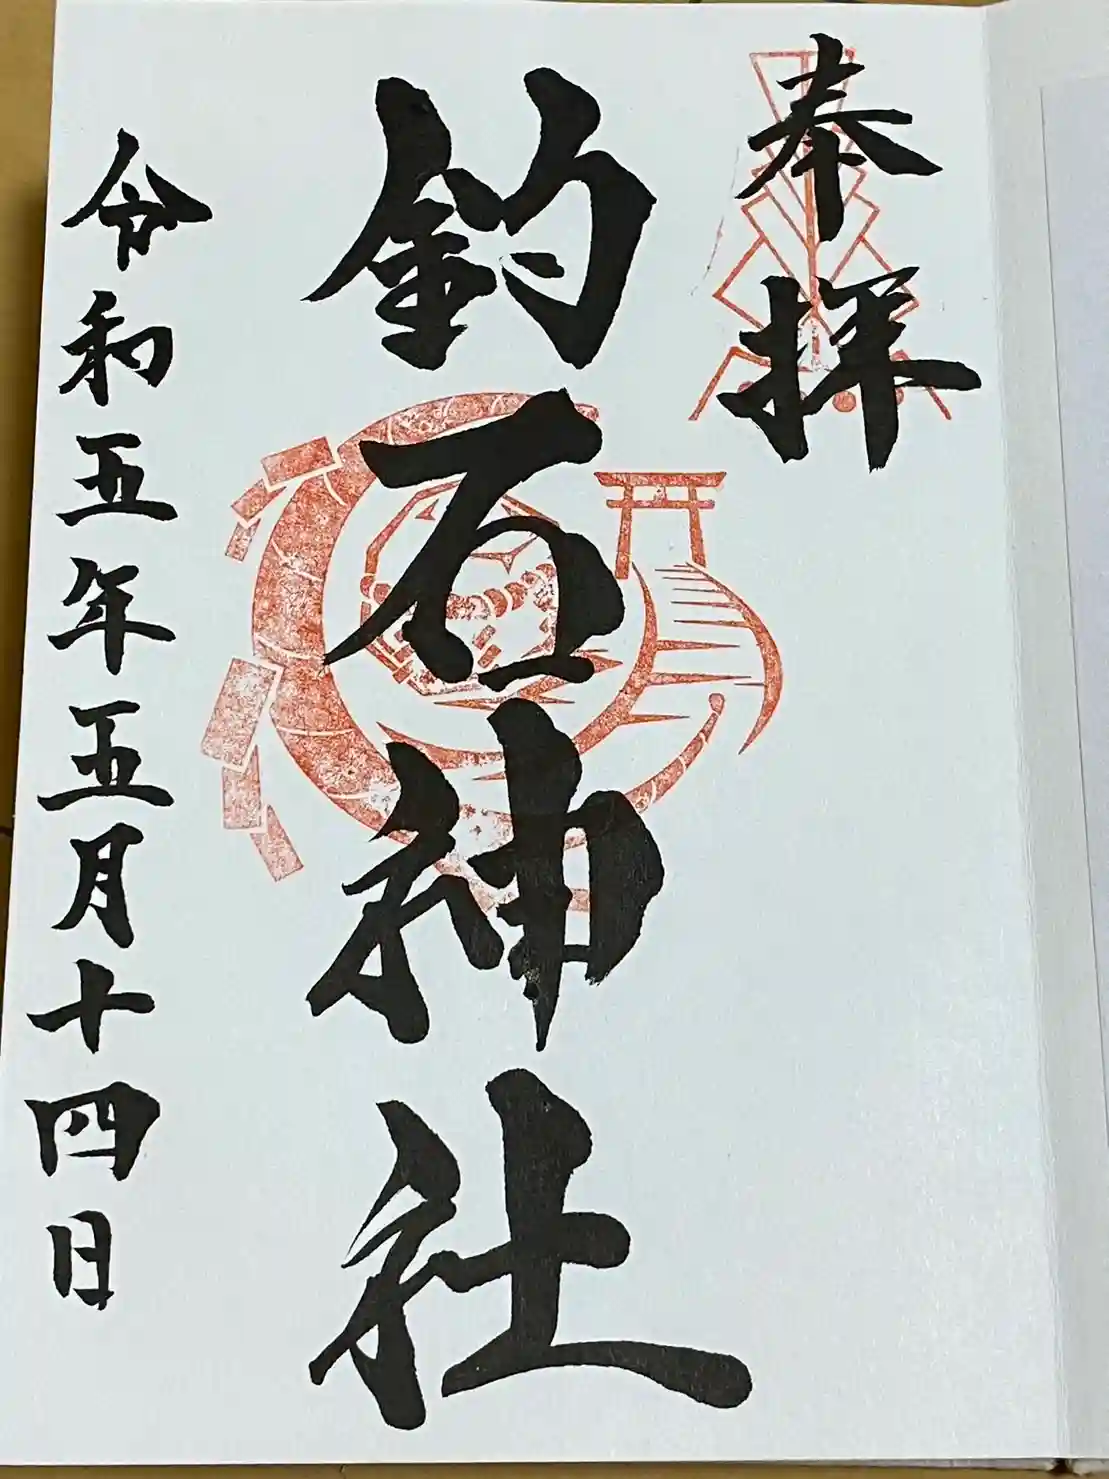 奉拝
釣石神社
令和五年五月十四日